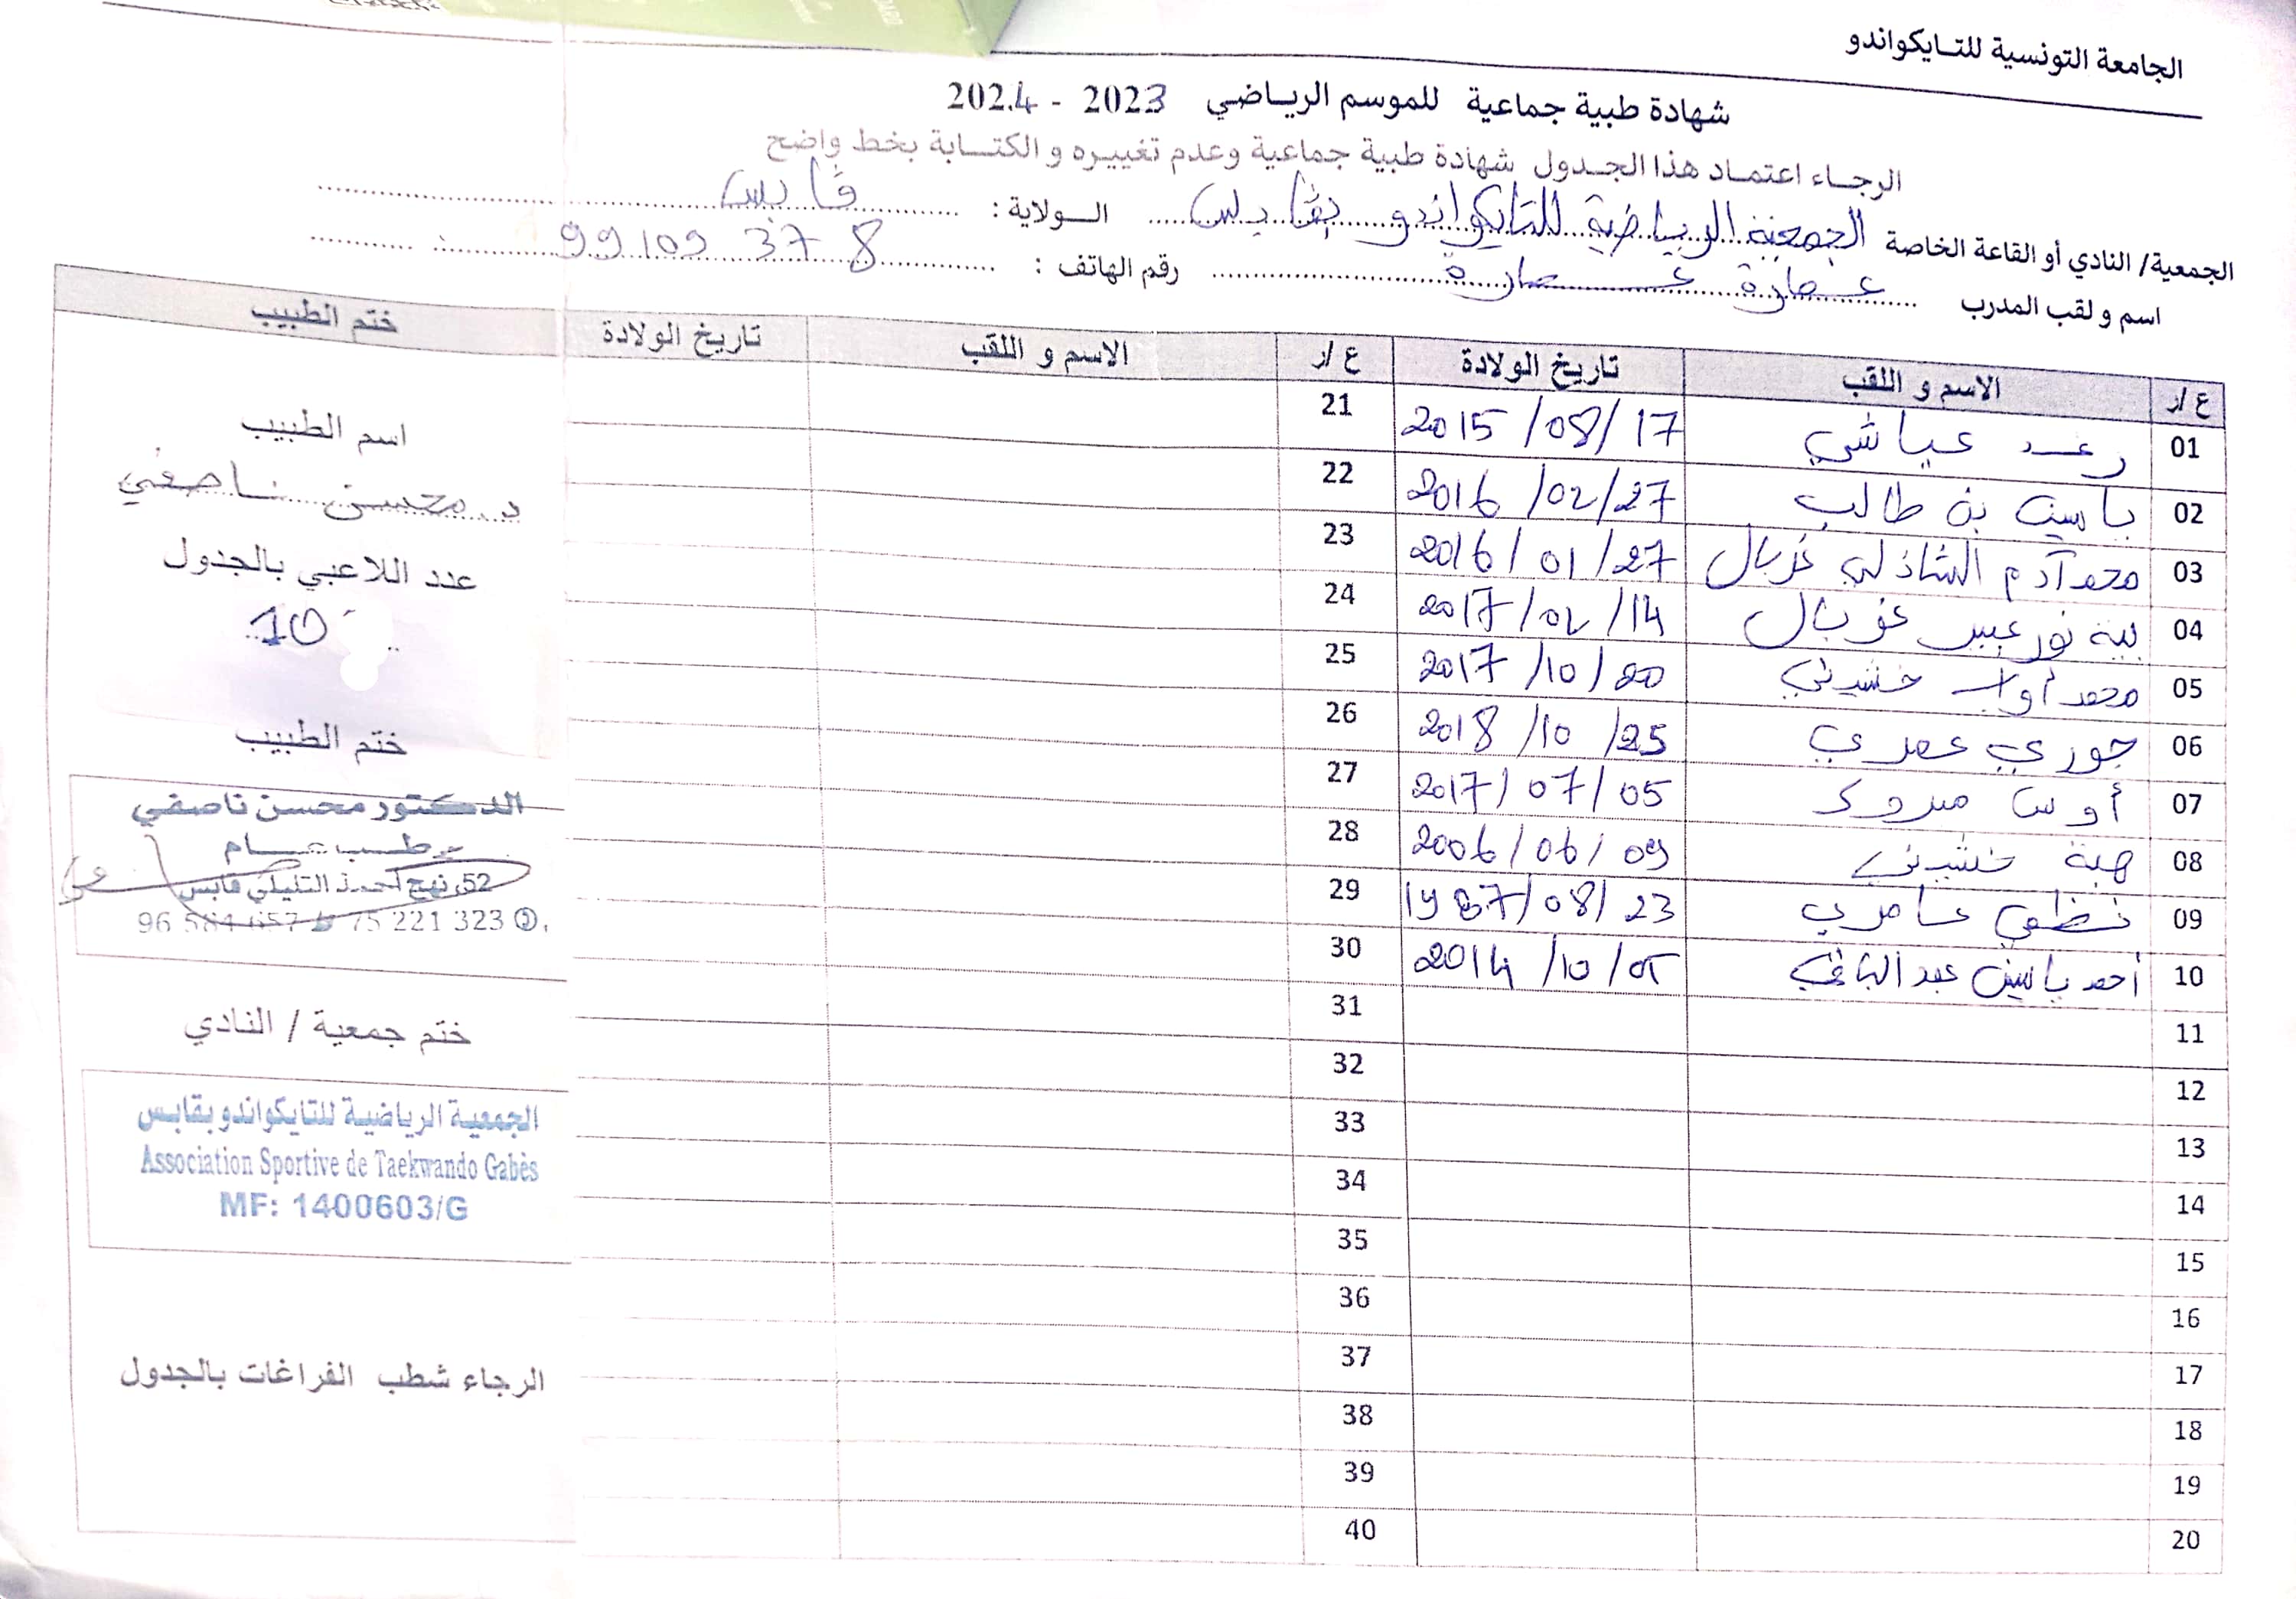 الجامعة التونسية للتايكواندو
شهادة طبية جماعية للموسم الرياضي 2023 - 2024
الرجاء اعتماد هذا الجدول شهادة طبية جماعية وعدم تغييره و الكتابة بخط واضح
الجمعية/ النادي أو القاعة الخاصة الجمعية الرياضية للتايكواندو بقابس الولاية : قابس
اسم و لقب المدرب رقم الهاتف : 99 109 378
ع /ر الاسم و اللقب تاريخ الولادة ع /ر الاسم و اللقب تاريخ الولادة ختم الطبيب
01 رعد عياشي 2015 /08/ 17 21
02 ياسين بن طالب 2016 /02/27 22
03 محمد آدم الشاذلي غربال 2016/ 01 /27 23
04 بية نور عبير غربال 2017/02/14 24
05 محمد أواب خشيني 2017 /10/20 25
06 جوري عمري 2018 /10 /25 26
07 أوس مبروك 2017/ 07/05 27
08 هبة خشيني 2006/06/09 28
09 عامري 1987/08/ 23 29
10 أحمد ياسين عبد الباقي 2014 /10/05 30
11 31
12 32
13 33
14 34
15 35
16 36
17 37
18 38
19 39
20 40
اسم الطبيب
د. محسن ناصفي
عدد اللاعبي بالجدول
10
ختم الطبيب
الدكتور محسن ناصفي
طب عام
52، نهج أحمد التليلي قابس
75 221 323
ختم جمعية / النادي
الجمعية الرياضية للتايكواندو بقابس
Association Sportive de Taekwando Gabès
MF: 1400603/G
الرجاء شطب الفراغات بالجدول